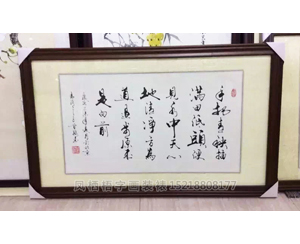 手把青秧插
满田低頭便
見水中天心
地清淨方為
道退步原来
是向前
凤栖梧字画装裱15218888177